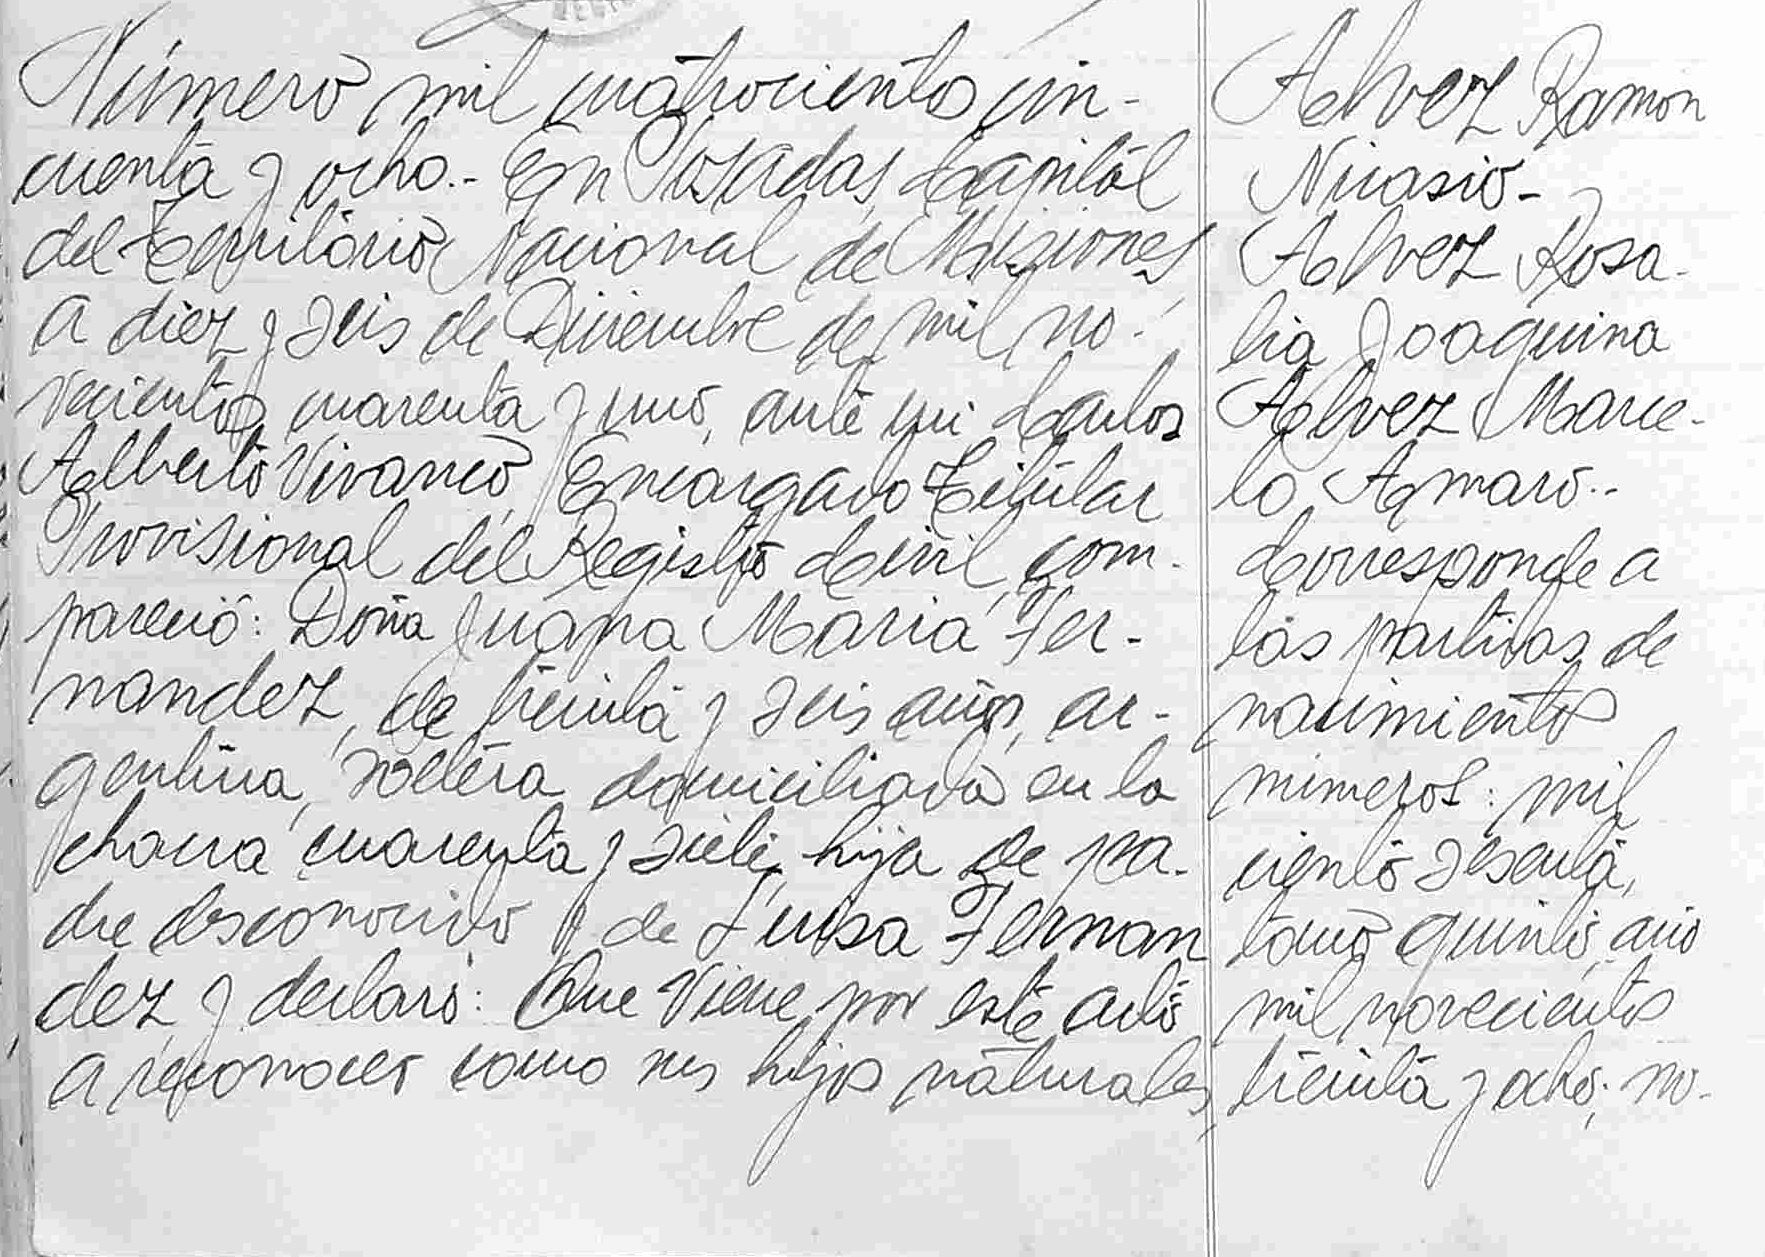 Número mil cuatrociento cin-
cuenta y ocho.- En Posadas, Capital
del Territorio Nacional de Misiones,
a diez y seis de Diciembre de mil no-
vecientos cuarenta y uno, ante mi Carlos
Alberto Vivanco, Encargado Titular
Provisional del Registro Civil, com-
pareció: Doña Juana Maria Fer-
nandez, de treinta y seis años, ar-
gentina, soltera domiciliada en la
chacra cuarenta y siete, hija de pa-
dre desconocido y de Luisa Fernan
dez, y declaró: Que viene por este acto
a reconocer como sus hijos naturales,
Alvez Ramon
Nicasio-
Alvez Rosa-
lia Joaquina
Alvez Marce-
lo Amaro..
Corresponde a
las partidas de
nacimientos
números: mil
ciento sesenta,
tomo quinto, año
mil novecientos
treinta y ocho; no-